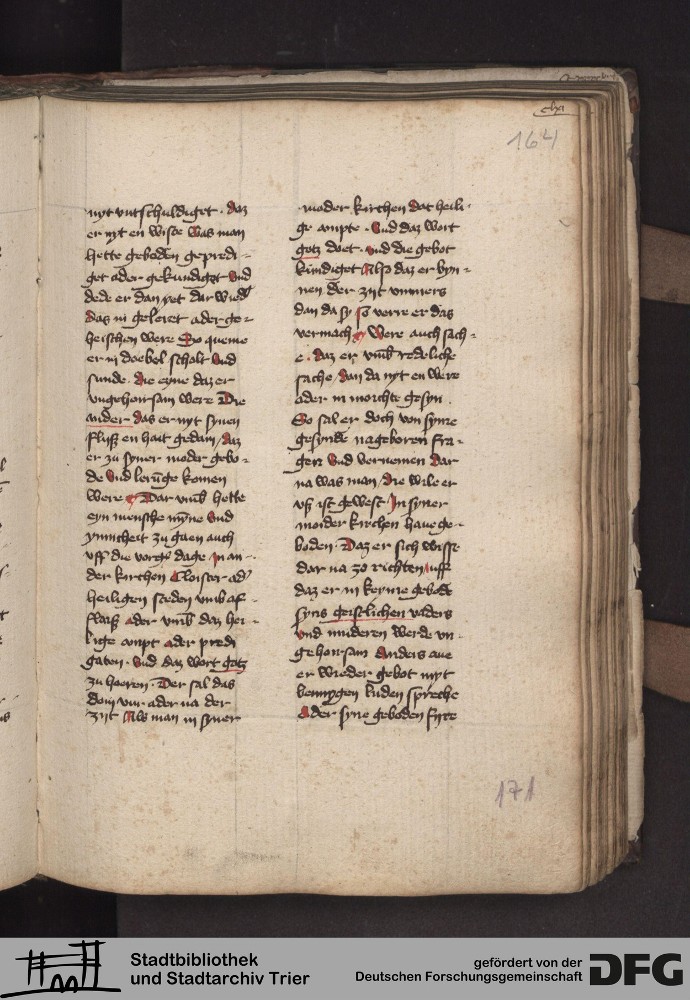 clxi
164
nyt vntschuldiget · daz
er nyt en wiste was man
hette geboden gepredi-
get ader gekundiget vnd
dede er dan yet dar wied'
das in geleret ader ge-
heischen were So queme
er in doebel scholt vnd
sunde · die eyne daz er
vngehorsam were Die
ander das er nyt synen
fliisß en hait gedain / daz
er zu syner moder gebo-
de vnd lerūge komen
were Dar vmb hette
eyn mensche mȳne vnd
ynnicheit zu gaen auch
vff die vorgñ dage in an-
der kirchen Cloister od'
heiligen steden vmb af-
flaiß ader vmb daz hei-
lige ampt ader predi
gaten · vnd daz wort gotz
zu hoeren · Der sal das
doin vur ader na der
zijt Als man in syner
moder kirchen dat heili-
ge ampte · vnd daz wort
gotz doet · vnd die gebot
kundiget Also daz er byn-
nen der zijt vmmers
dan da sy so verre er das
vermach Were auch sach-
e · daz er vmb redeliche
sache / dan da nyt en were
ader in moichte gesyn ·
So sal er doch von syme
gesynde nageboren fra-
gen vnd vernemen dar
na was man / die wile er
vß ist gewest In syner
moider kirchen haue ge-
boden · Daz er sich wisse
dar na zo richten / uff
daz er in keyme gebode
syns geistlichen vaders
vnd mnideren werde vn-
gehorsam Anders aue
er wieder gebot myt
bennygen luden spreche
Ader syne geboden fyre
171
Stadtbibliothek
und Stadtarchiv Trier
gefördert von der
Deutschen Forschungsgemeinschaft
DFG